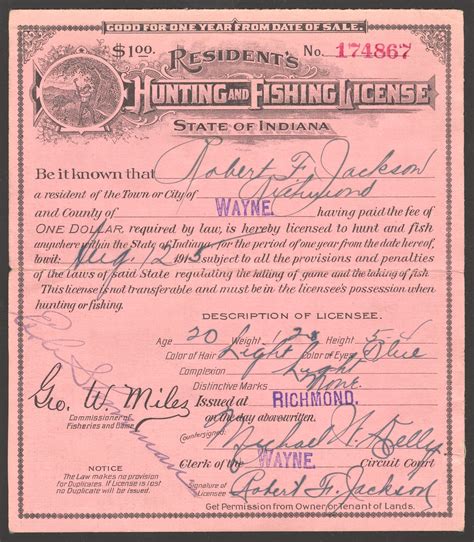 GOOD FOR ONE YEAR FROM DATE OF SALE.
$1.00. RESIDENT'S No. 174867
HUNTING AND FISHING LICENSE
STATE OF INDIANA
Be it known that Robert F. Jackson
a resident of the Town or City of Richmond
and County of WAYNE. having paid the fee of
ONE DOLLAR, required by law, is hereby licensed to hunt and fish
anywhere within the State of Indiana for the period of one year from the date hereof,
towit: Aug 12 1915 subject to all the provisions and penalties
of the laws of said State regulating the killing of game and the taking of fish
This license is not transferable and must be in the licensee's possession when
hunting or fishing.
DESCRIPTION OF LICENSEE.
Age 20 Weight 128 Height 5-4
Color of Hair Light Color of Eyes Blue
Complexion Light
Distinctive Marks None
Geo. W. Miles Issued at RICHMOND.
Commissioner of Fisheries and Game on the day above written.
Countersigned Michael W. Kelly
Clerk of the WAYNE Circuit Court
NOTICE
The Law makes no provision
for Duplicates. If License is lost
no Duplicate will be issued.
Signature of Licensee Robert F. Jackson
Get Permission from Owner or Tenant of Lands.